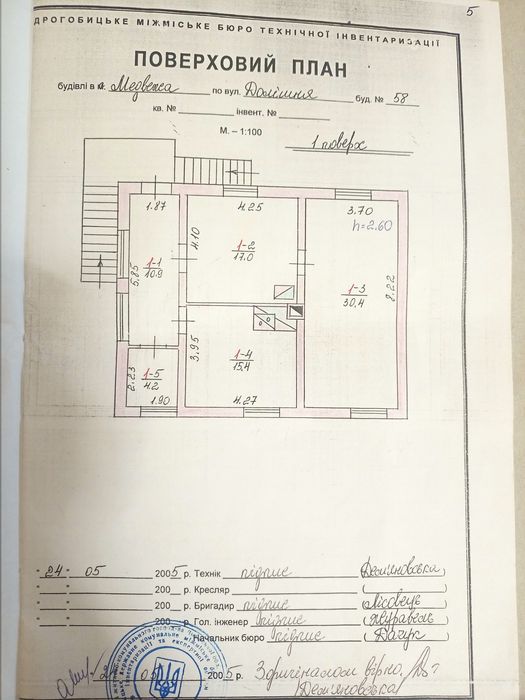 5
ДРОГОБИЦЬКЕ МІЖМІСЬКЕ БЮРО ТЕХНІЧНОЇ ІНВЕНТАРИЗАЦІЇ
ПОВЕРХОВИЙ ПЛАН
будівлі в с. Медвежа по вул. Долішня буд. № 58
кв. № інвент. №
М. – 1:100
1 поверх
1.87 4.25 3.70
h=2.60
4.10
5.85 1-1 10.9
1-2 17.0
1-3 30,4
8.22
3.95 1-4 15,4
2.23 1-5 4.2
1.90 4.27
"24" 05 2005 р. Технік підпис (Демяновська)
" " 200 р. Кресляр ( )
" " 200 р. Бригадир підпис (Лісовець)
" " 200 р. Гол. інженер підпис (Журавель)
Начальник бюро підпис (Дацук)
05 2005 р. З оригіналом вірно.
Демяновська